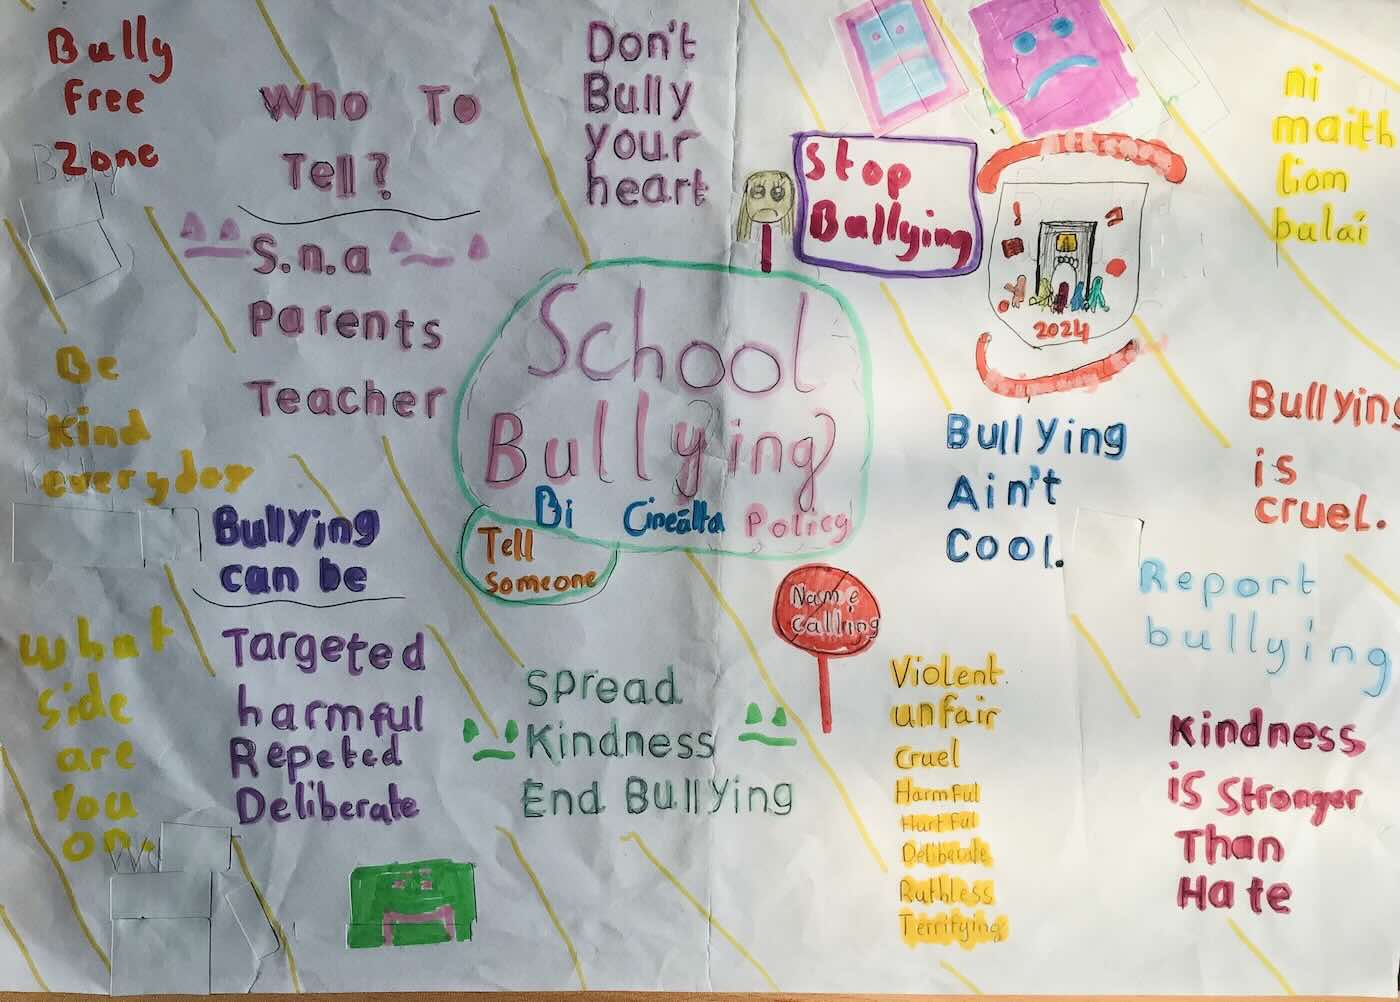 Bully
Free
Zone
Who To
Tell?
S.n.a
Parents
Teacher
Don't
Bully
your
heart
Stop
Bullying
2024
ni
maith
liom
bulaí
School
Bullying
Bí Cineálta Policy
Tell
Someone
Be
Kind
everyday
Bullying
can be
Targeted
harmful
Repeted
Deliberate
What
side
are
you
on.
Spread
Kindness
End Bullying
Name
calling
Bullying
Ain't
Cool.
Violent
unfair
Cruel
Harmful
Hurtful
Deliberate
Ruthless
Terrifying
Bullying
is
cruel.
Report
bullying
Kindness
is Stronger
Than
Hate